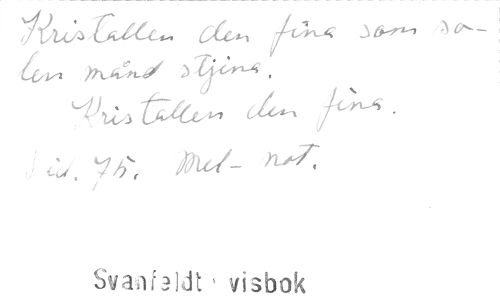 Kristallen den fina som so-
len månd stjina.
Kristallen den fina.
Sid. 75. Mel-not.
Svanfeldt visbok